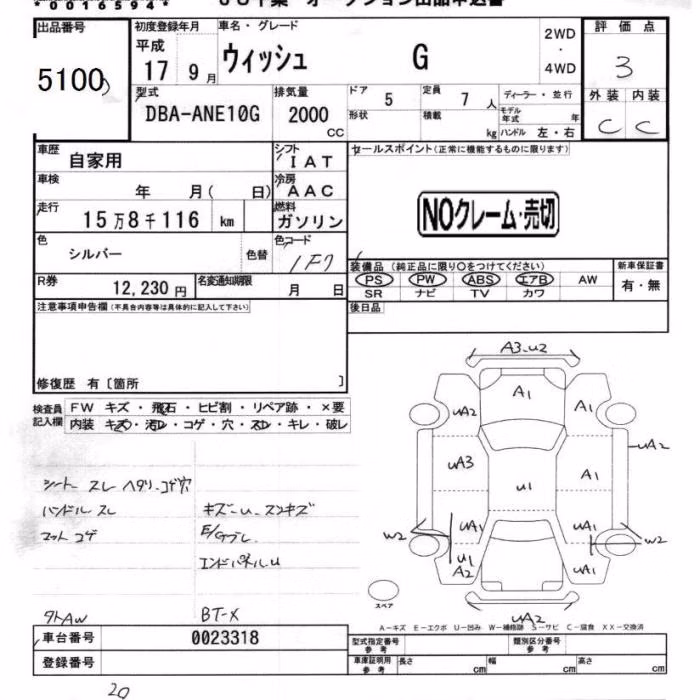 *00165594*
出品番号 初度登録年月 車名・グレード 2WD・4WD 評価点
5100 平成17 9月 ウィッシュ G 3
型式 DBA-ANE10G 排気量 2000 CC ドア 5 定員 7人 ディーラー・並行 外装 内装
形状 積載 kg モデル年式 年 ハンドル 左・右 C C
車歴 自家用 シフト IAT セールスポイント(正常に機能するものに限ります)
車検 年 月( 日) 冷房 AAC
走行 15万8千116 km 燃料 ガソリン
NOクレーム・売切
色 シルバー 色替 色コード 1F7
装備品(純正品に限り○をつけてください) 新車保証書
PS PW ABS エアB AW 有・無
SR ナビ TV カワ
R券 12,230円 名変通知期限 月 日
後日品
注意事項申告欄(不具合内容等は具体的に記入して下さい)
修復歴 有〔箇所 〕
検査員記入欄 FW キズ・飛石・ヒビ割・リペア跡・×要
内装 キズ・汚レ・コゲ・穴・スレ・キレ・破レ
A3-U2
A1
UA2 A1
UA2
UA3 A1
U1
UA1 UA1
W2 W2
U1
A2 UA1
UA2
シート スレ ヘタリ コゲ穴
ハンドル スレ キズ-U-スンキズ
マット コゲ
エンドパネルU
スペア
外AW BT-X
A-キズ E-エクボ U-凹み W-補修跡 S-サビ C-腐食 XX-交換済
車台番号 0023318 型式指定番号 参考 類別区分番号 参考
登録番号 車庫証明用 参考 長さ cm 幅 cm 高さ cm
20